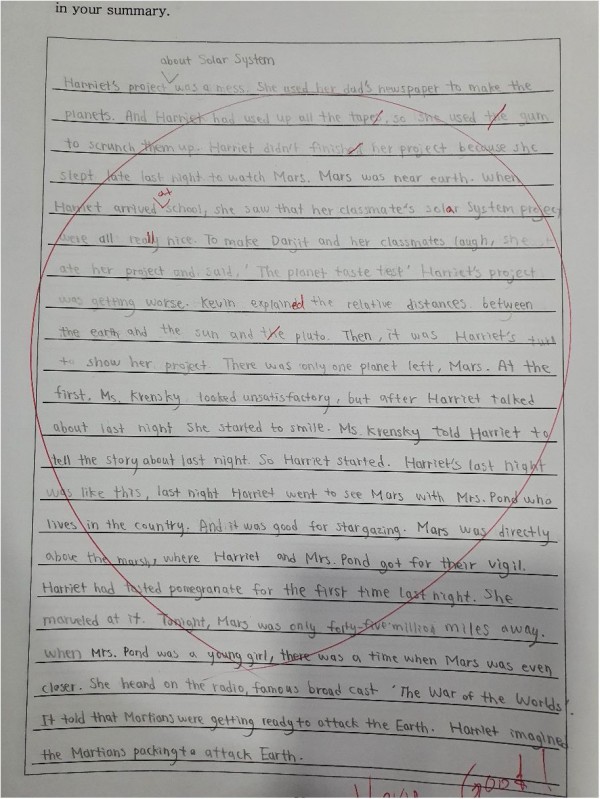 in your summary.
about Solar System
Harriet's project was a mess. She used her dad's newspaper to make the
planets. And Harriet had used up all the tape, so she used the gum
to scrunch them up. Harriet didn't finished her project because she
slept late last night to watch Mars. Mars was near earth. When
at
Harriet arrived school, she saw that her classmate's solar System project
were all really nice. To make Darjit and her classmates laugh, she
ate her project and said, 'The planet taste test' Harriet's project
was getting worse. Kevin explained the relative distances between
the earth and the sun and the pluto. Then, it was Harriet's turn
to show her project. There was only one planet left, Mars. At the
first, Ms. Krensky looked unsatisfactory, but after Harriet talked
about last night She started to smile. Ms. Krensky told Harriet to
tell the story about last night. So Harriet started. Harriet's last night
was like this, last night Harriet went to see Mars with Mrs. Pond who
lives in the country. And it was good for stargazing. Mars was directly
above the marsh, where Harriet and Mrs. Pond got for their vigil.
Harriet had tasted pomegranate for the first time last night. She
marveled at it. Tonight, Mars was only forty-five million miles away.
when Mrs. Pond was a young girl, there was a time when Mars was even
closer. She heard on the radio, famous broad cast 'The War of the Worlds'.
It told that Martians were getting ready to attack the Earth. Harriet imagined
the Martians packing to attack Earth.
Good!